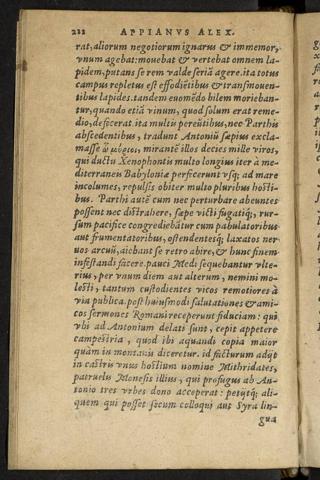 222 APPIANVS ALEX.
rat, aliorum negotiorum ignarus & immemor,
vnum agebat: mouebat & vertebat omnem la-
pidem, putans se rem valde seriā agere. ita totus
campus repletus est effodiētibus & transmouen-
tibus lapides. tandem euomēdo bilem morieban-
tur, quando etiā vinum, quod solum erat reme-
dio, defecerat. ita multis pereūtibus, nec Parthis
abscedentibus, tradunt Antoniū sæpius excla-
masse ὦ μύριοι, mirantē illos decies mille viros,
qui ductu Xenophontis multo longius iter à me-
diterraneis Babyloniæ perficerunt vsq; ad mare
incolumes, repulsis obiter multo pluribus hosti-
bus. Parthi autē cum nec perturbare abeuntes
possent nec distrahere, sæpe victi fugatiq́;, rur-
sum pacifice congrediebātur cum pabulatoribus
aut frumentatoribus, ostendentesq́; laxatos ner-
uos arcuū, aiebant se retro abire, & hunc finem
infestandi facere. pauci Medi sequebantur vlte-
rius, per vnum diem aut alterum, nemini mo-
lesti, tantum custodientes vicos remotiores à
via publica. post huiusmodi salutationes & ami-
cos sermones Romani receperunt fiduciam: qui
vbi ad Antonium delati sunt, cepit appetere
campestria, quod ibi aquandi copia maior
quàm in montanis diceretur. id facturum adijt
in castris vnus hostium nomine Mithridates,
patruelis Monesis illius, qui profugus ab An-
tonio tres vrbes dono acceperat: petijtq́; ali-
quem qui posset secum colloqui aut Syra lin-
gua